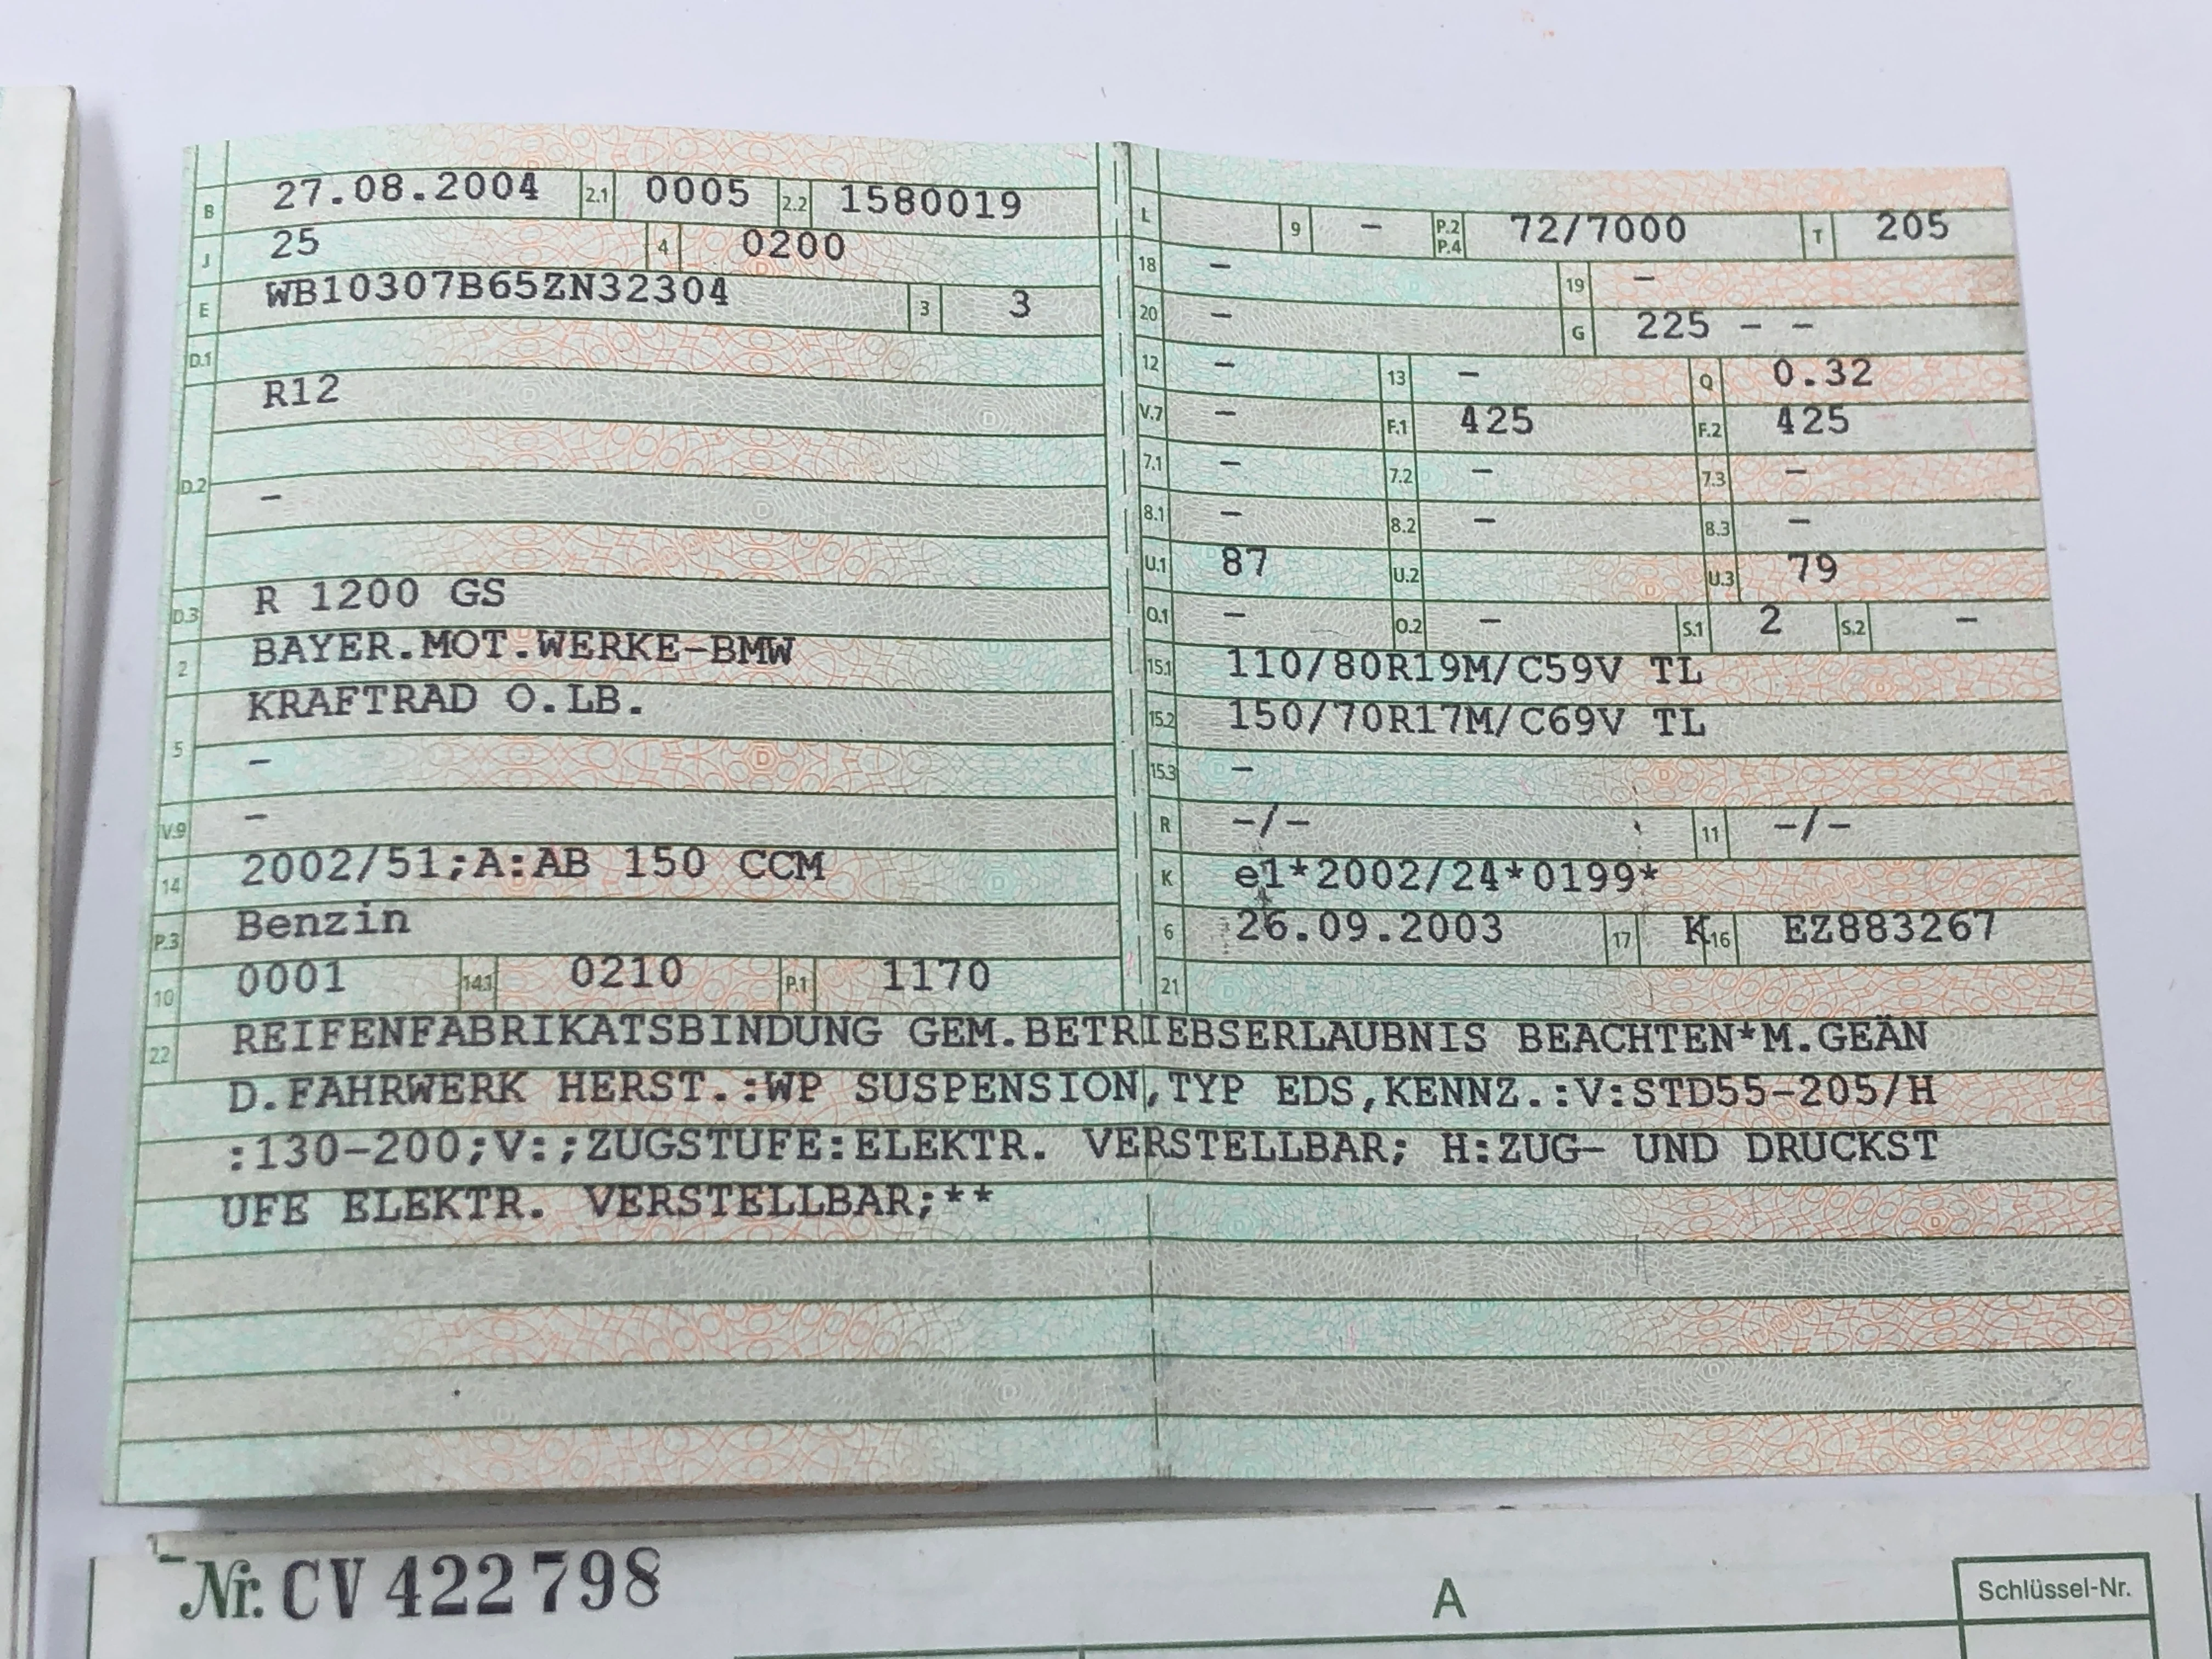 B 27.08.2004 2.1 0005 2.2 1580019
J 25 4 0200
E WB10307B65ZN32304 3 3
D.1
R12
D.2 –
D.3 R 1200 GS
2 BAYER.MOT.WERKE-BMW
5 KRAFTRAD O.LB.
–
V.9 –
14 2002/51;A:AB 150 CCM
P.3 Benzin
10 0001 14.1 0210 P.1 1170
L 9 – P.2 P.4 72/7000 T 205
18 – 19 –
20 – G 225 – –
12 – 13 – Q 0.32
V.7 – F.1 425 F.2 425
7.1 – 7.2 – 7.3 –
8.1 – 8.2 – 8.3 –
U.1 87 U.2 U.3 79
O.1 – O.2 – S.1 2 S.2 –
15.1 110/80R19M/C59V TL
15.2 150/70R17M/C69V TL
15.3 –
R –/– 11 –/–
K e1*2002/24*0199*
6 26.09.2003 17 K 16 EZ883267
21
22 REIFENFABRIKATSBINDUNG GEM.BETRIEBSERLAUBNIS BEACHTEN*M.GEÄN
D.FAHRWERK HERST.:WP SUSPENSION,TYP EDS,KENNZ.:V:STD55-205/H
:130-200;V:;ZUGSTUFE:ELEKTR. VERSTELLBAR; H:ZUG- UND DRUCKST
UFE ELEKTR. VERSTELLBAR;**
Nr. CV 422798
A
Schlüssel-Nr.